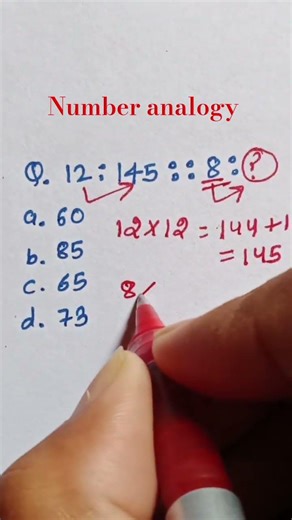 Number analogy
Q. 12 : 145 :: 8 : ?
a. 60
12 × 12 = 144 + 1
b. 85
= 145
c. 65
8
d. 73